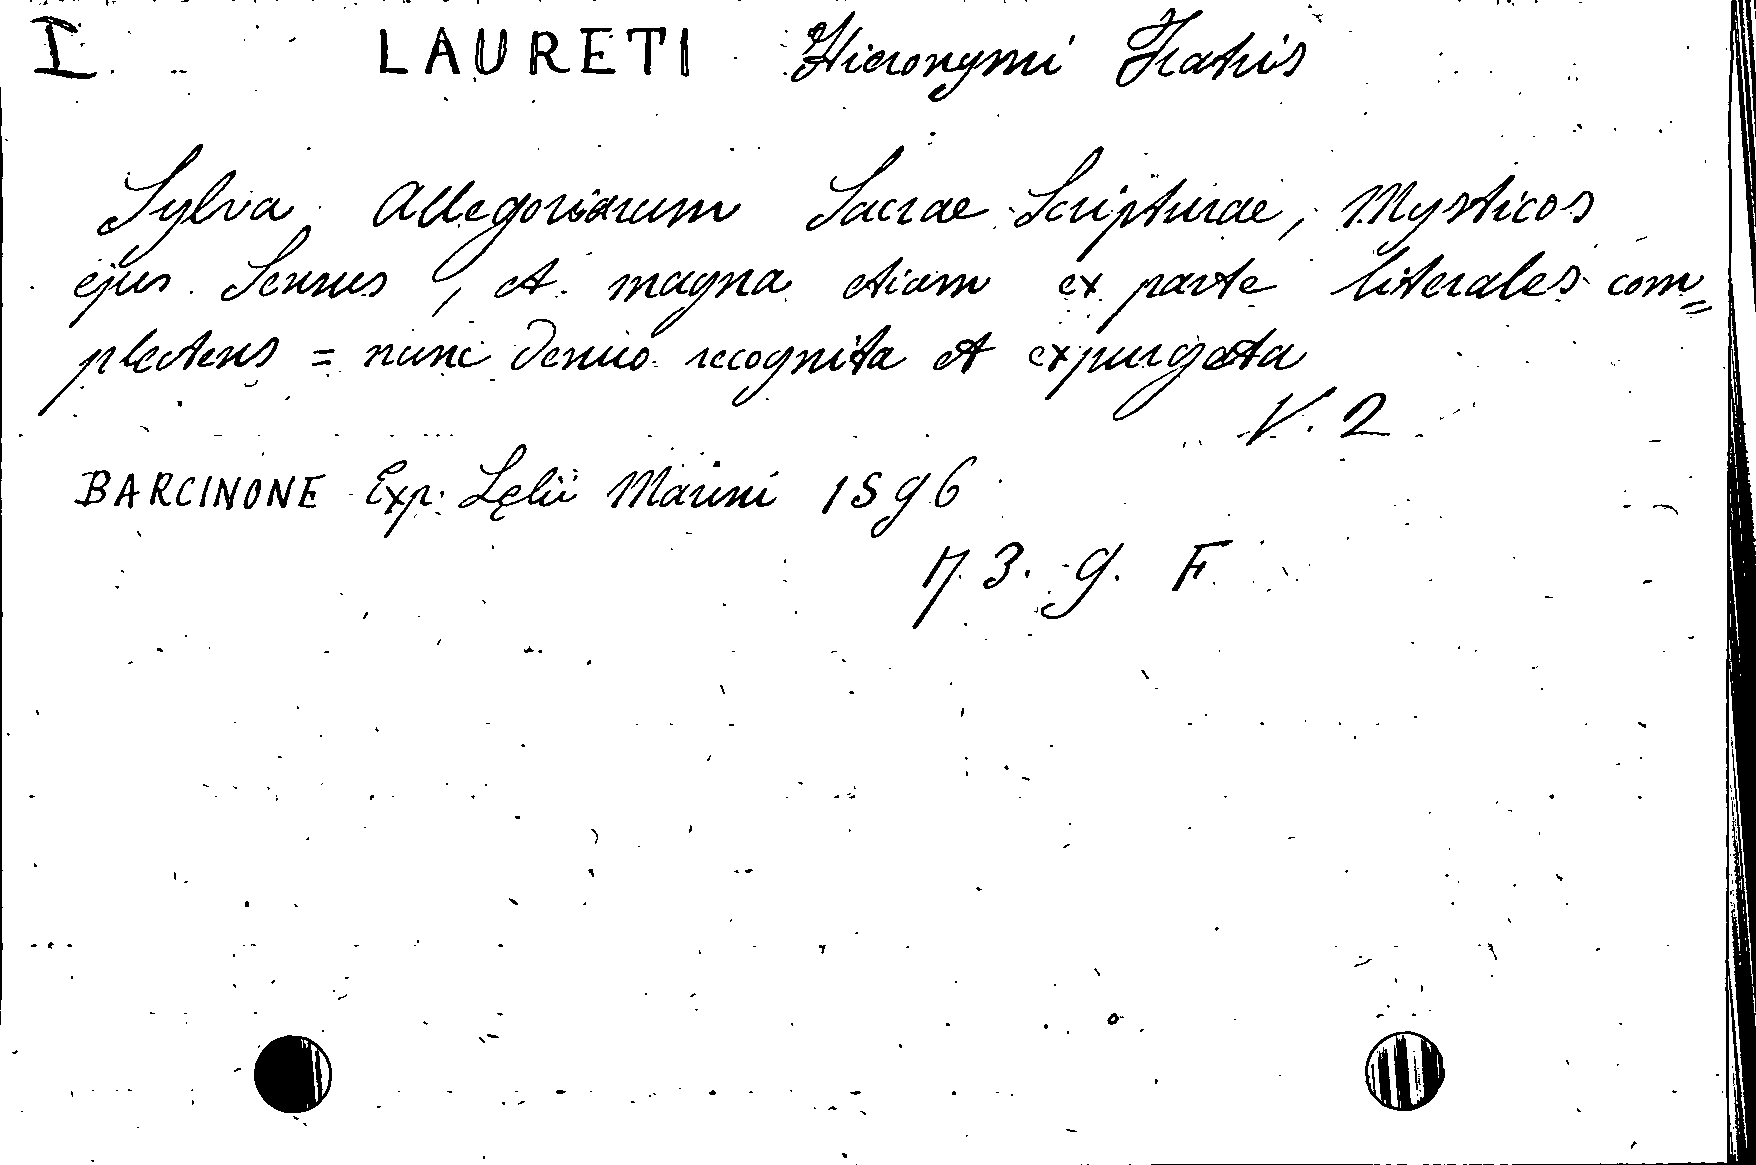 I LAURETI Hieronymi Fratris
Sylva Allegoriarum Sacrae Scripturae, Mysticos
ejus Sensus, et magna etiam ex parte literales com=
plectens = nunc denuo recognita et expurgata
V. 2
BARCINONE Exp. Lęlii Marini 1596
17. 3. g. F